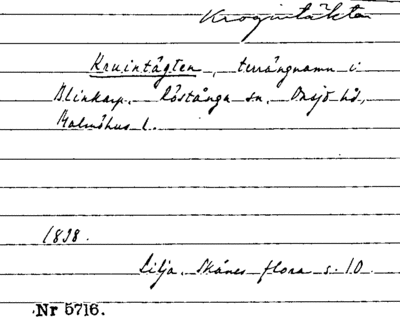 Krogintäkta
Kruintägten, terrängnamn i
Blinkarp, Röstånga sn, Onsjö hd,
Malmöhus l.
1838.
Lilja. Skånes flora s. 10
Nr 5716.